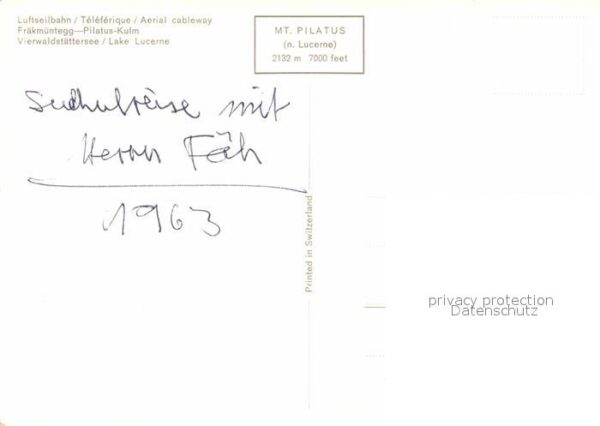 Luftseilbahn / Téléférique / Aerial cableway
Fräkmüntegg—Pilatus-Kulm
Vierwaldstättersee / Lake Lucerne
MT. PILATUS
(n. Lucerne)
2132 m 7000 feet
mit
Herrn Fäh
1963
Printed in Switzerland
privacy protection
Datenschutz